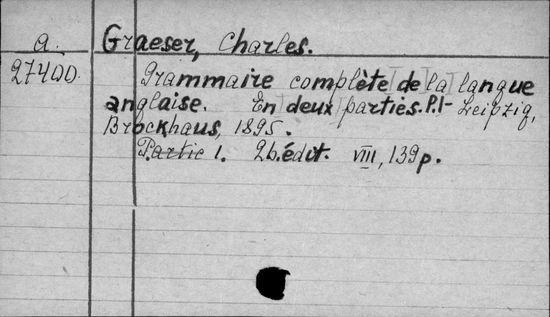 a. Graeser, Charles.
27400. Grammaire complète de la langue
anglaise. En deux parties. P.I- Leipzig,
Brockhaus, 1895.
Partie 1. 2b. édit. VIII, 139 p.